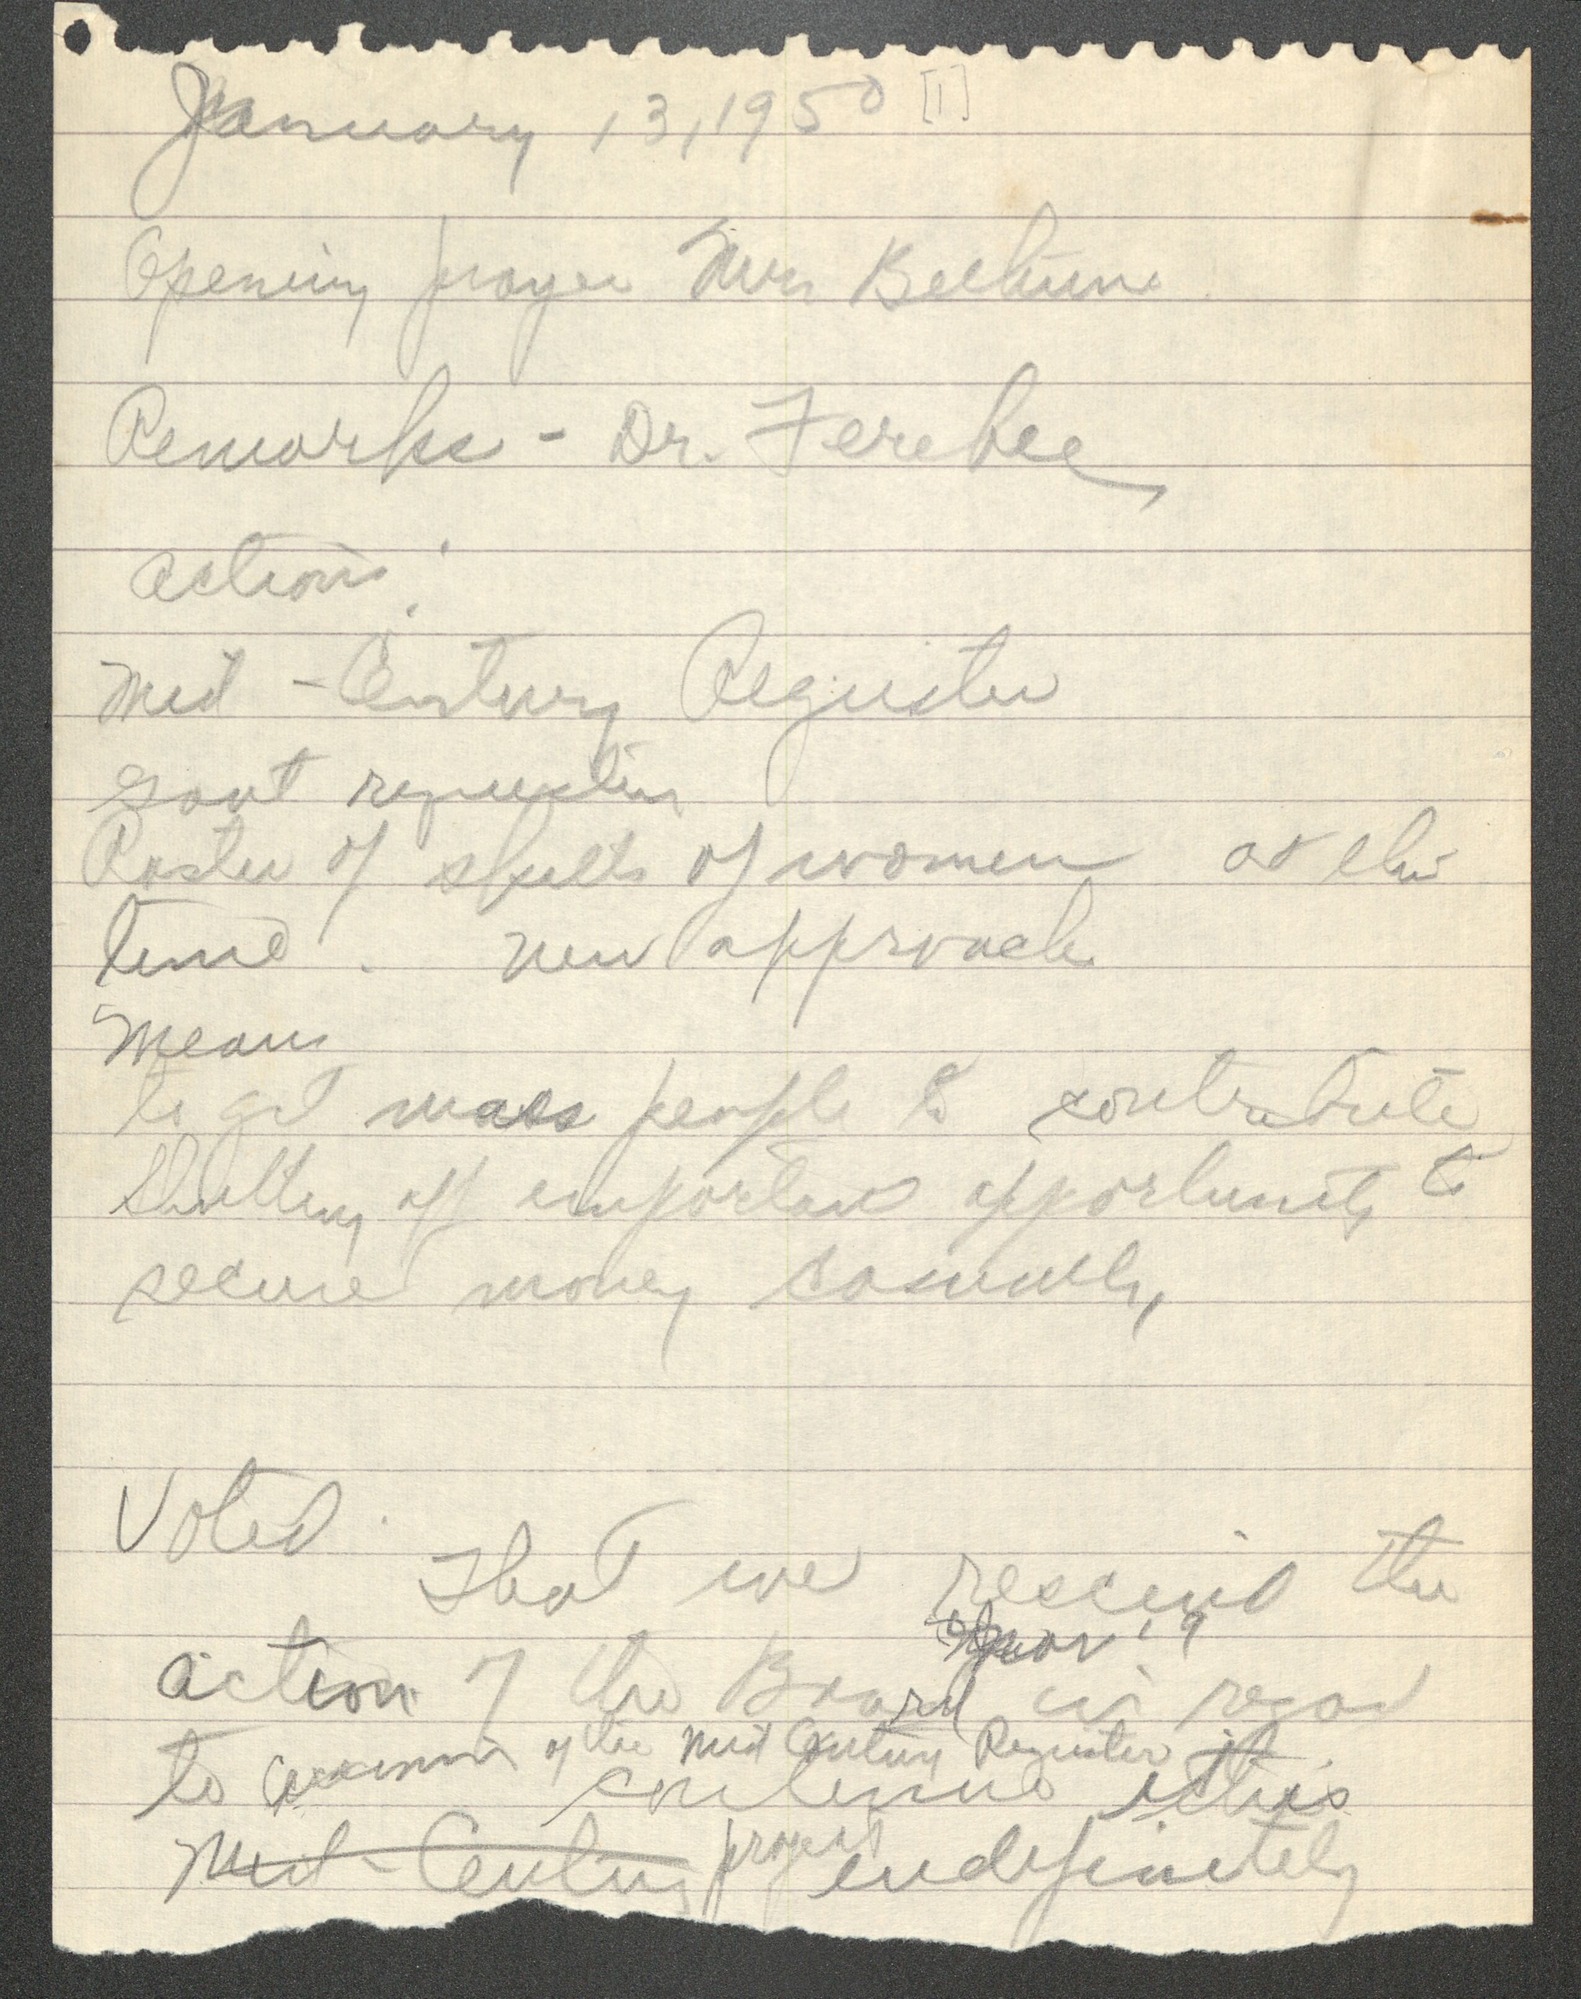 January 13, 1950 [1]
Opening prayer Mrs Bethune
Remarks - Dr. Ferebee
Actions:
Mid - Century Register
Govt requesting
Roster of skills of women at this
time. New approach
Means
to get mass people to contribute
Shutting off important opportunity to
secure money
Voted.
That we rescind the
action of the Board in regard
to of the Mid Century Register
continue this
Mid - Century project indefinitely